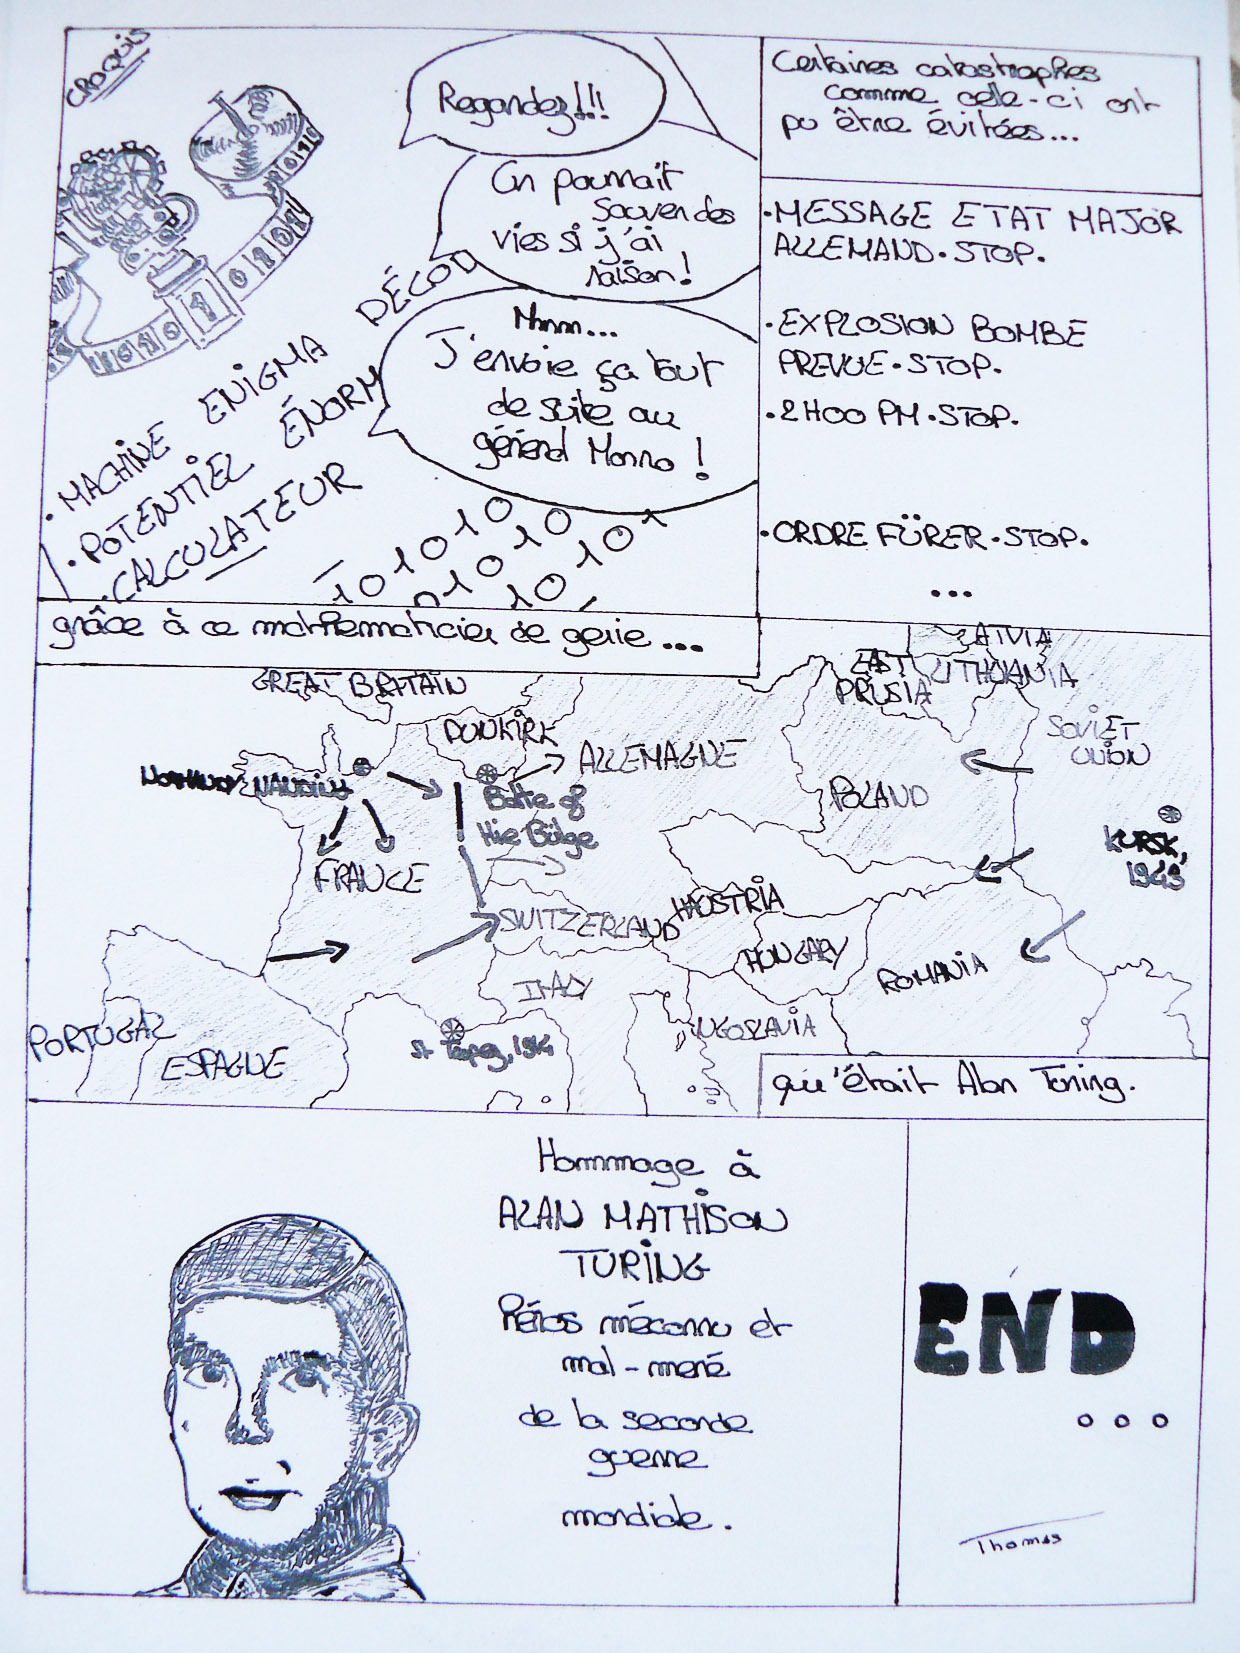 CROQUIS
Regardez!!!
On pourrait
sauver des
vies si j'ai
raison!
Mmm...
J'envoie ça tout
de suite au
général Monro!
DÉCOD
• MACHINE ENIGMA
• POTENTIEL ÉNORM
• CALCULATEUR
101010
01010
10101
Certaines catastrophes
comme celle-ci ont
pu être évitées...
• MESSAGE ETAT MAJOR
ALLEMAND • STOP.
• EXPLOSION BOMBE
PREVUE • STOP.
• 2H00 PM • STOP.
• ORDRE FÜRER • STOP.
...
grâce à ce mathématicien de génie...
LATVIA
LITHUANIA
EAST
PRUSIA
GREAT BRITAIN
DUNKIRK
ALLEMAGNE
SOVIET
UNION
NORMANDY
POLAND
Batle of
the Bulge
KURSK,
1943
FRANCE
SWITZERLAND
HAUSTRIA
HUNGARY
ROMANIA
ITALY
St Tropez, 1944
PORTUGAL
ESPAGNE
qu'était Alan Turing.
Hommage à
ALAN MATHISON
TURING
Héros méconnu et
mal-mené
de la seconde
guerre
mondiale.
END
...
Thomas